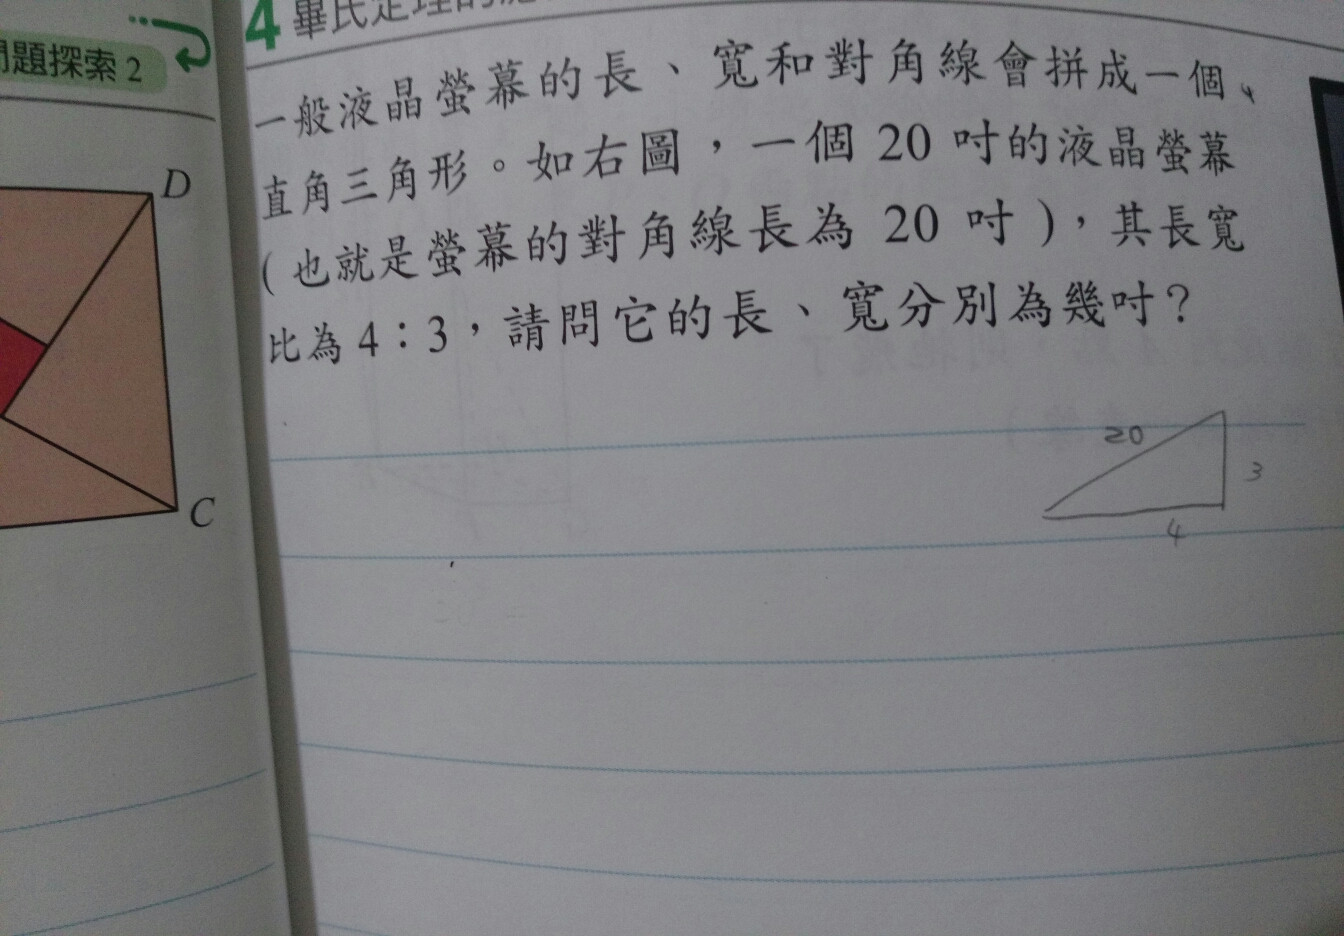 問題探索 2
4 畢氏定理的應
一般液晶螢幕的長、寬和對角線會拼成一個
直角三角形。如右圖，一個 20 吋的液晶螢幕
(也就是螢幕的對角線長為 20 吋)，其長寬
比為 4：3，請問它的長、寬分別為幾吋？
D
C
20
3
4